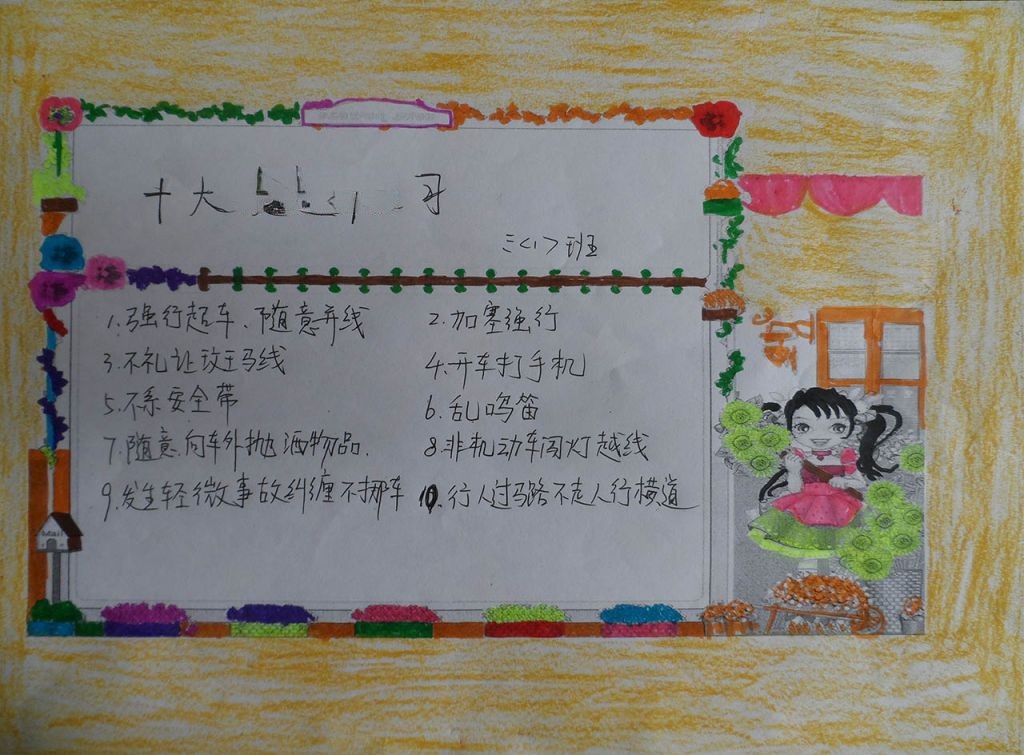 十大 习
三<1>班
1.强行超车、随意并线 2.加塞强行
3.不礼让斑马线 4.开车打手机
5.不系安全带 6.乱鸣笛
7.随意向车外抛洒物品. 8.非机动车闯灯越线
9.发生轻微事故纠缠不挪车 10.行人过马路不走人行横道
Mail